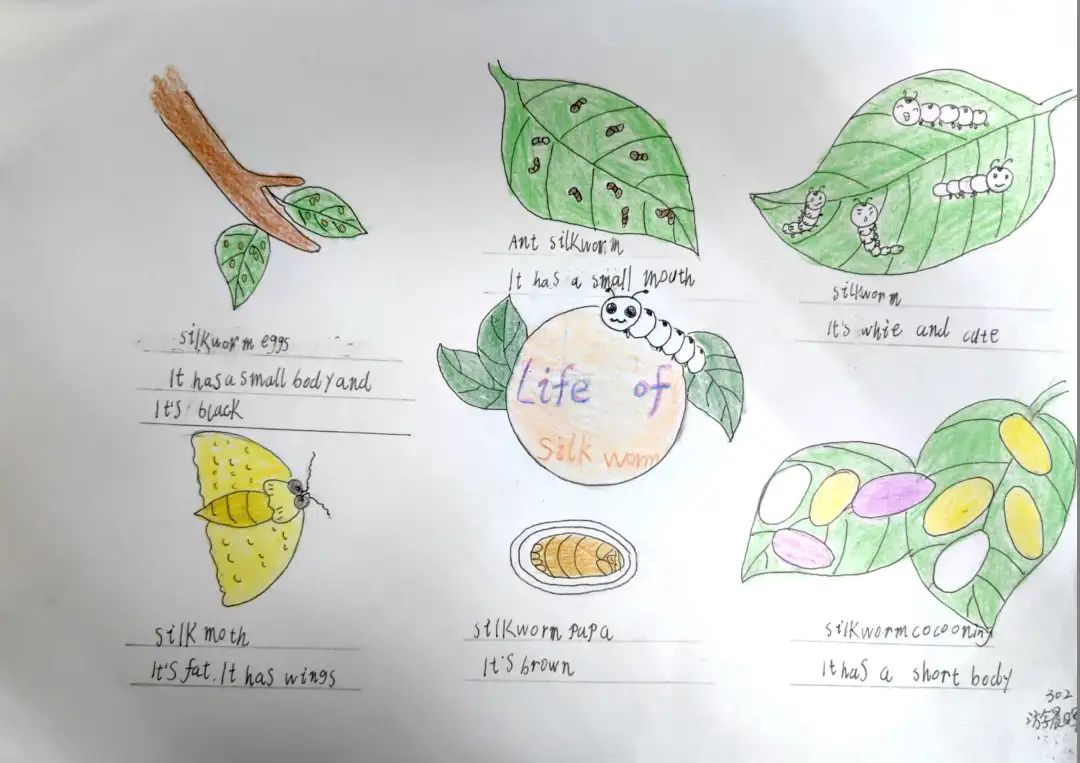 silkworm eggs
It has a small body and
It's black
Ant silkworm
It has a small mouth
silkworm
It's whtie and cute
Life of
silk worm
silk moth
It's fat. It has wings
silkworm pupa
It's brown
silkworm cocooning
It has a short body
302
游晨